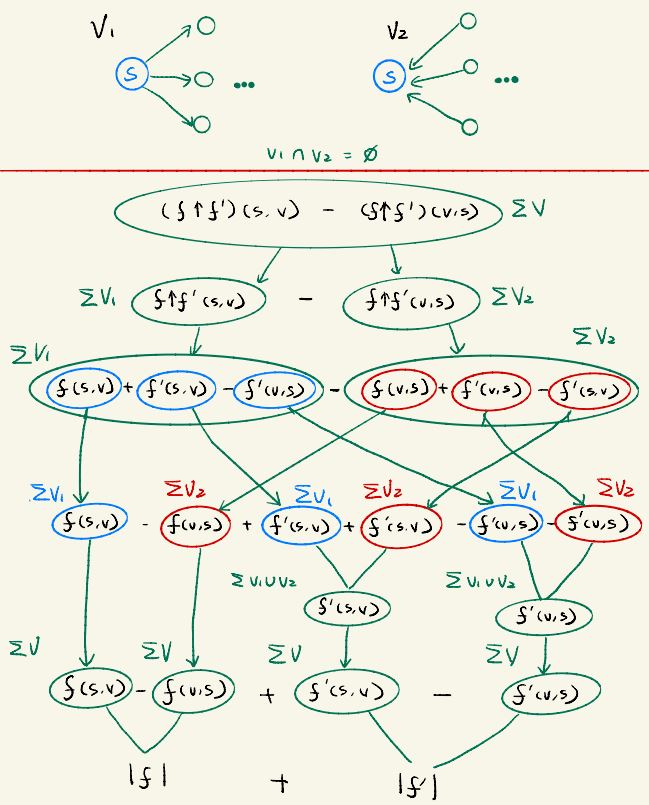 V₁ V₂
S ... S ...
V₁ ∩ V₂ = ∅
(f↑f')(s,v) - (f↑f')(v,s) ΣV
ΣV₁ f↑f'(s,v) - f↑f'(v,s) ΣV₂
ΣV₁ ΣV₂
f(s,v) + f'(s,v) - f'(v,s) - f(v,s) + f'(v,s) - f'(s,v)
ΣV₁ ΣV₂ ΣV₁ ΣV₂ ΣV₁ ΣV₂
f(s,v) - f(v,s) + f'(s,v) + f'(s,v) - f'(v,s) - f'(v,s)
ΣV₁∪V₂ ΣV₁∪V₂
f'(s,v) f'(v,s)
ΣV ΣV ΣV ΣV
f(s,v) - f(v,s) + f'(s,v) - f'(v,s)
|f| + |f'|